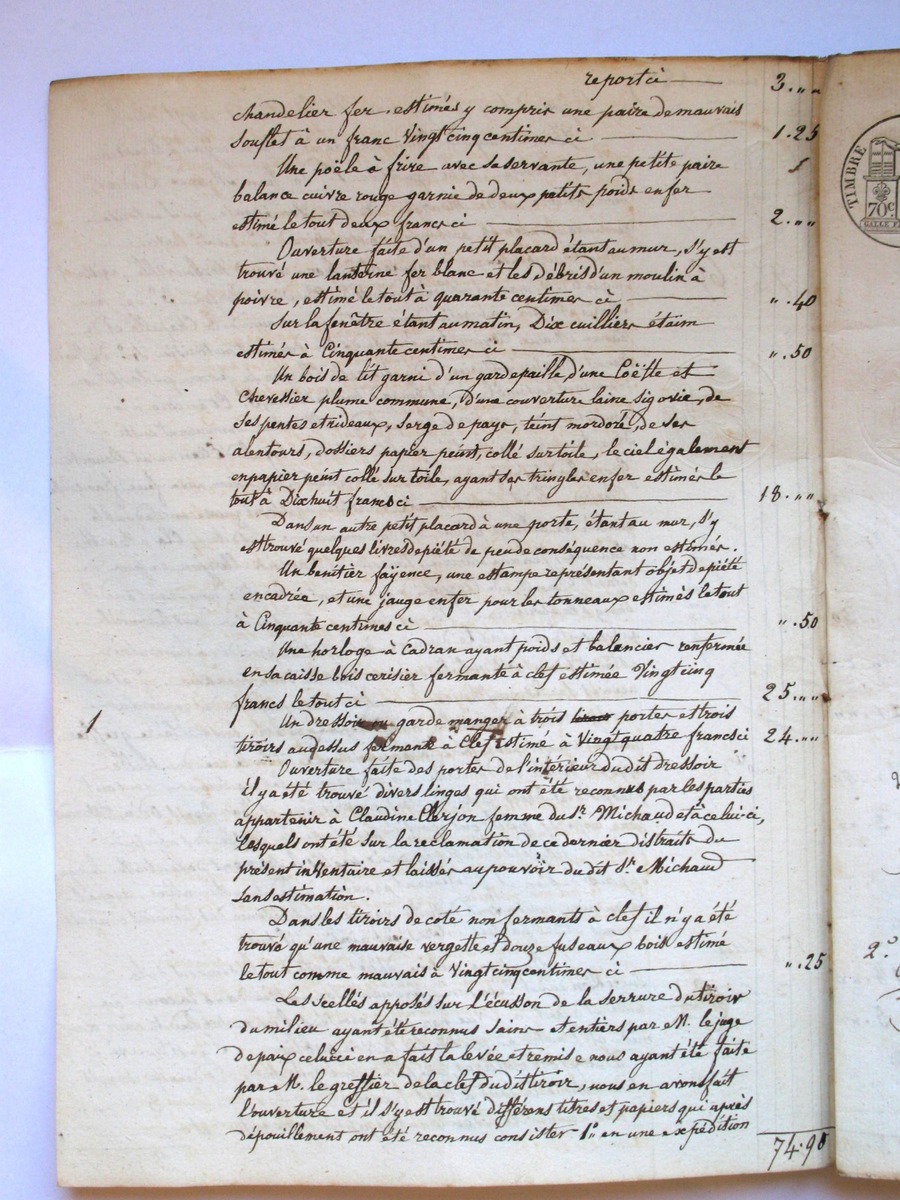 report ci 3. " "
chandelier fer, estimés y compris une paire de mauvais
souflet à un franc Vingt cinq centimes ci 1.25
Une poële à frire avec sa servante, une petite paire
balance cuivre rouge garnie de deux petits poids en fer
estimé le tout deux francs ci 2. " "
Ouverture faite d'un petit placard étant au mur, s'y est
trouvé une lanterne fer blanc et les débris d'un moulin à
poivre, estimé le tout à quarante centimes ci " .40
Sur la fenêtre étant au matin, Dix cuilliers étaim
estimés à Cinquante centimes ci " .50
Un bois de lit garni d'un gardepaille, d'une Coëtte et
Chevessier plume commune, d'une couverture laine sigovie, de
ses pentes et rideaux, serge de pays, teint mordoré, de ses
alentours, dossiers papier peint, collé sur toile, le ciel également
en papier peint collé sur toile, ayant ses tringles en fer estimés le
tout à Dix huit francs ci 18. " "
Dans un autre petit placard à une porte, étant au mur, s'y
est trouvé quelques livres de piété de peu de conséquence non estimés.
Un benitier fayence, une estampe représentant objet de piété
encadrée, et une jauge en fer pour les tonneaux estimés le tout
à Cinquante centimes ci " .50
Une horloge à Cadran ayant poids et balancier renfermée
en sa caisse bois cerisier fermante à clef estimée Vingt cinq
francs le tout ci 25. " "
1 Un dressoir ou garde manger à trois portes et trois
tiroirs au dessus fermant à Clef estimé à Vingt quatre francs ci 24. " "
Ouverture faite des portes de l'intérieur du dit dressoir
il y a été trouvé divers linges qui ont été reconnus par les parties
appartenir à Claudine Clerjon femme du Sr. Michaud et à celui-ci,
lesquels ont été sur la réclamation de ce dernier distraits du
présent inventaire et laissés au pouvoir du dit Sr. Michaud
sans estimation.
Dans les tiroirs de coté non fermants à clef il n'y a été
trouvé qu'une mauvaise vergette et douze fuseaux bois estimé
le tout comme mauvais à Vingt cinq centimes ci " .25
Les scellés apposés sur l'écusson de la serrure du tiroir
du milieu ayant été reconnus sains et entiers par M. le juge
de paix celui ci en a fait la levée et remise nous ayant été faite
par M. le greffier de la clef du dit tiroir, nous en avons fait
l'ouverture et il s'y est trouvé différens titres et papiers qui après
dépouillement ont été reconnus consister 1° en une expédition
74.90
TIMBRE
70c
2°